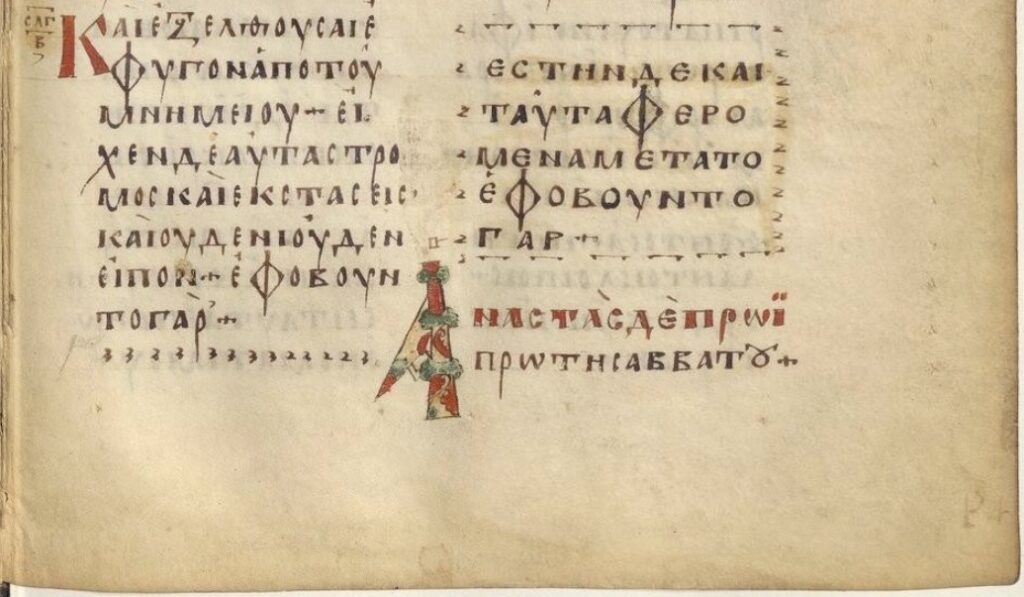 ϹΛΓ
Β
ΚΑΙΕΞΕΛΘΟΥϹΑΙΕ
ΦΥΓΟΝΑΠΟΤΟΥ
ΜΝΗΜΕΙΟΥ+ΕΙ
ΧΕΝΔΕΑΥΤΑϹΤΡΟ
ΜΟϹΚΑΙΕΚϹΤΑϹΕΙϹ
ΚΑΙΟΥΔΕΝΙΟΥΔΕΝ
ΕΙΠΟΝ+ΕΦΟΒΟΥΝ
ΤΟΓΑΡ+
ΕϹΤΗΝΔΕΚΑΙ
ΤΑΥΤΑΦΕΡΟ
ΜΕΝΑΜΕΤΑΤΟ
ΕΦΟΒΟΥΝΤΟ
ΓΑΡ+
ΑΝΑϹΤΑϹΔΕΠΡΩΪ
ΠΡΩΤΗϹΑΒΒΑΤȢ+